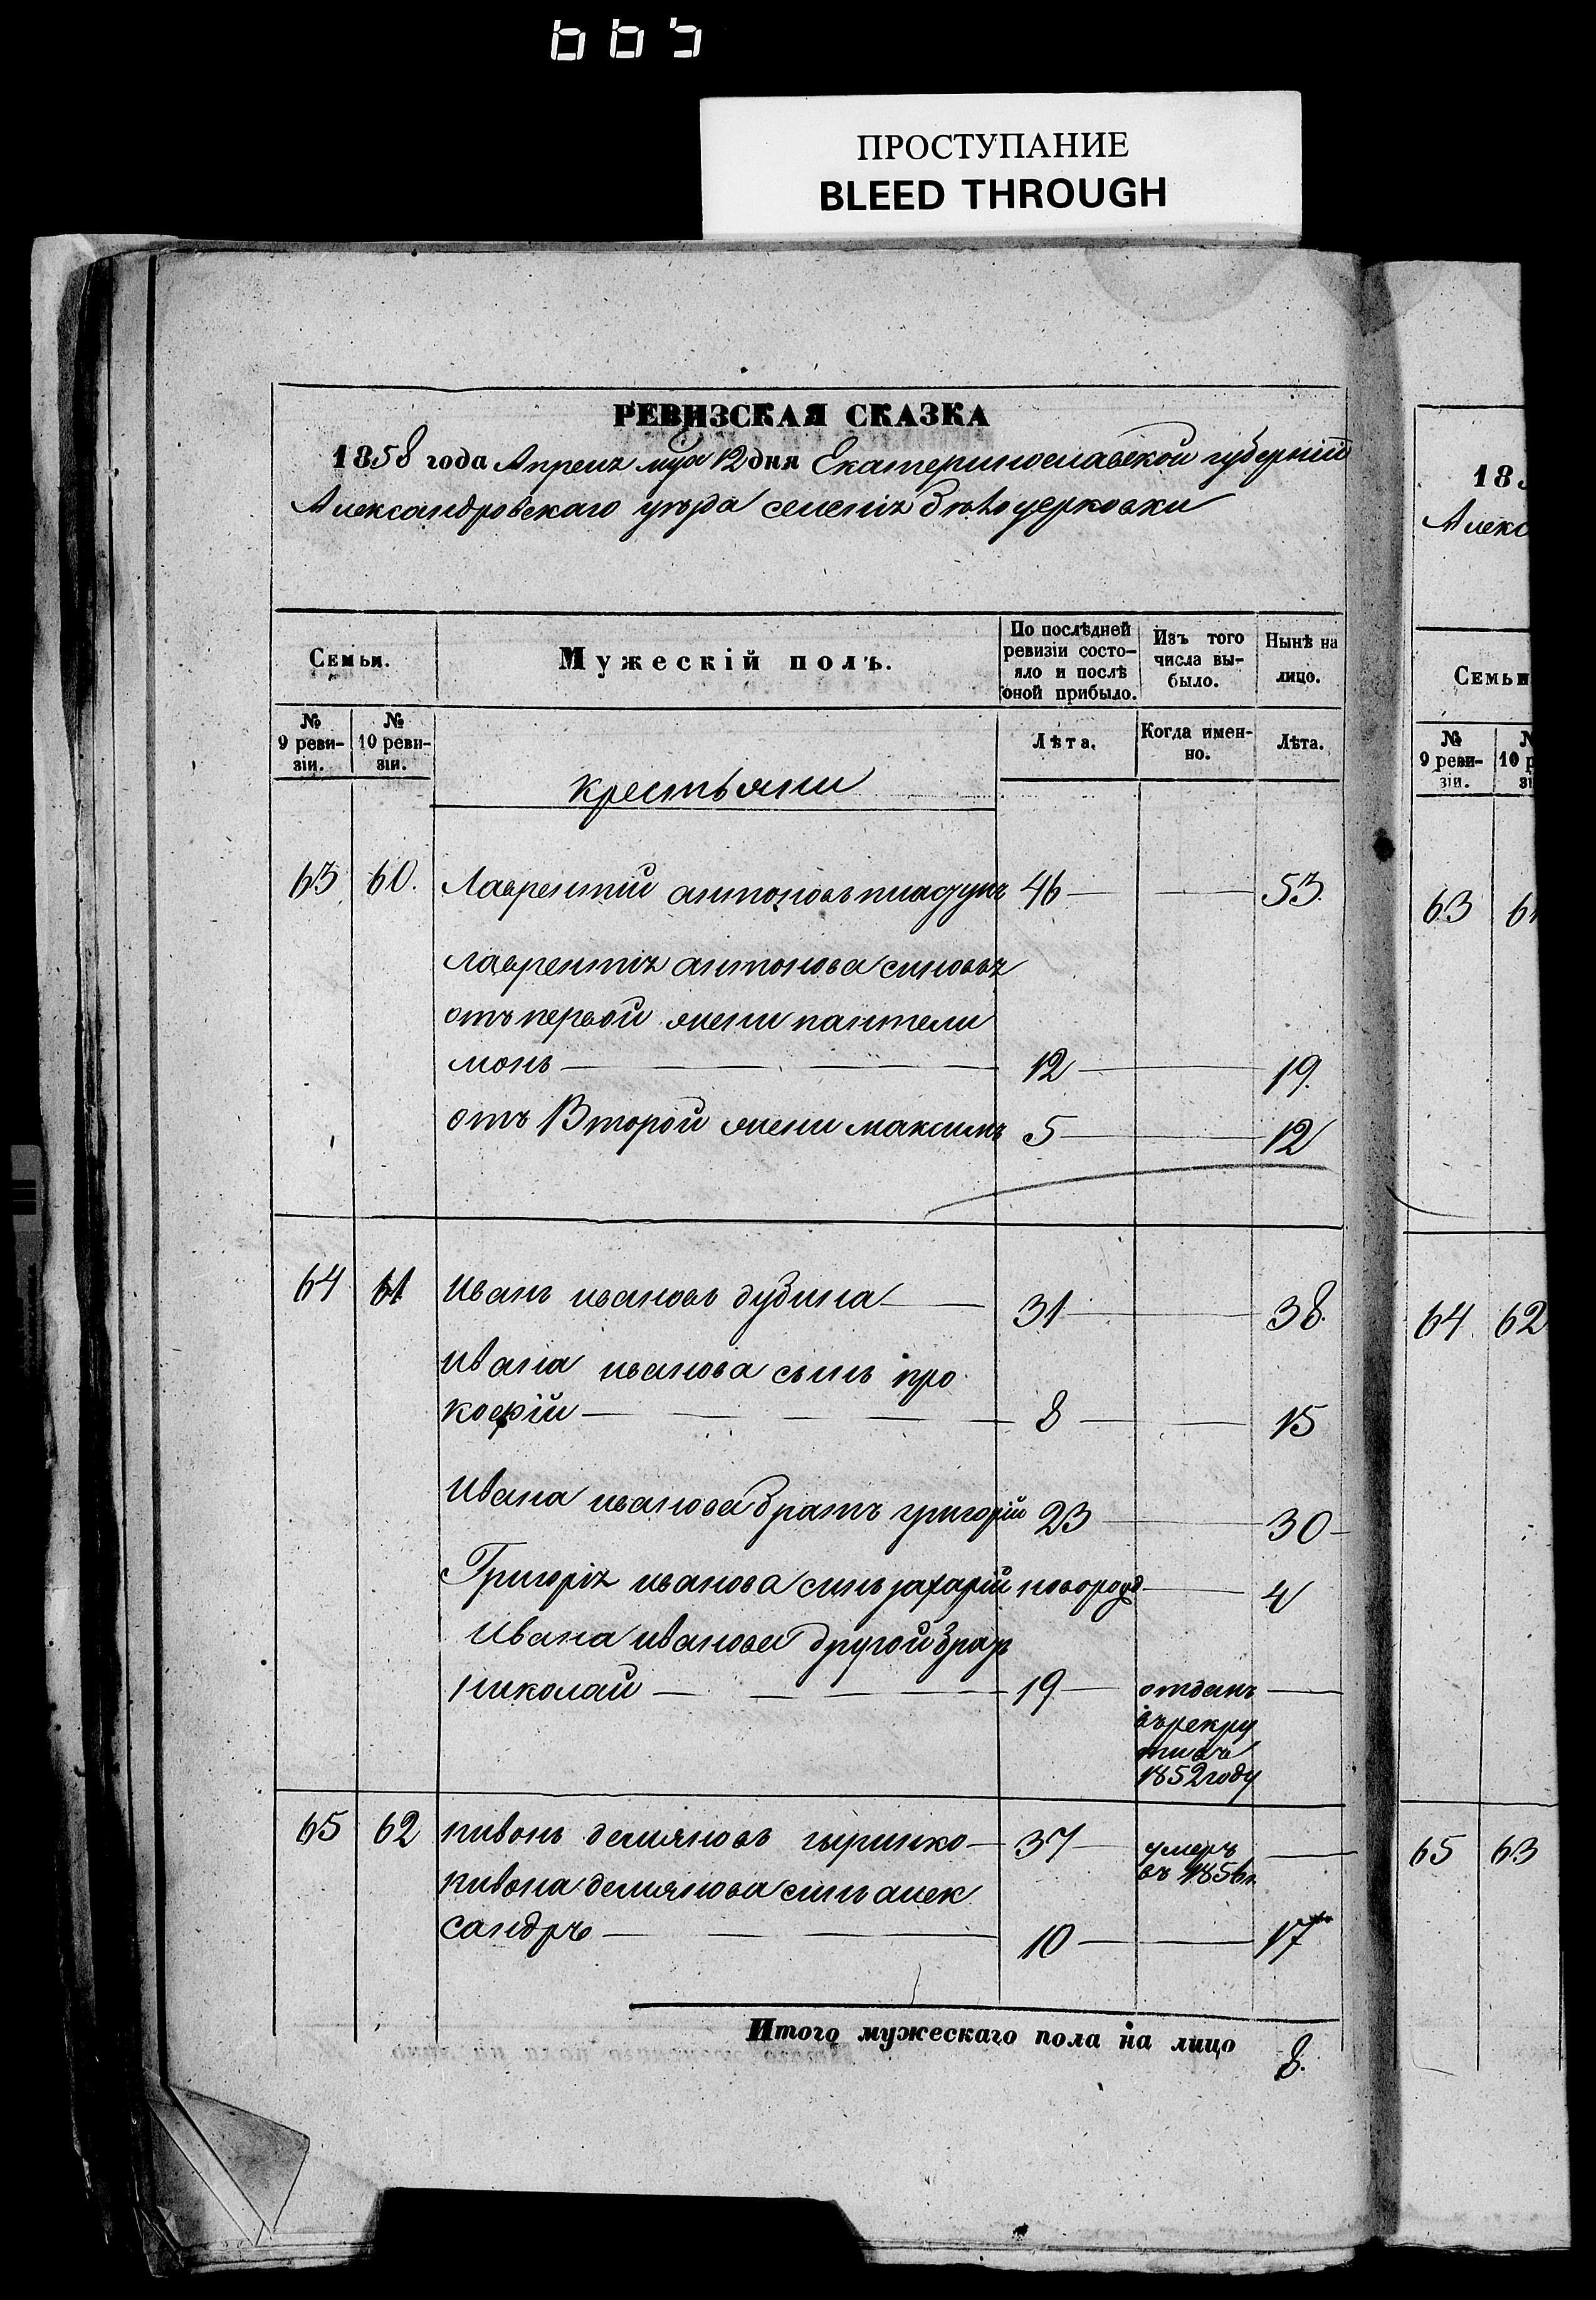 ПРОСТУПАНИЕ
BLEED THROUGH
РЕВИЗСКАЯ СКАЗКА
1858 года Апреля мца 12 дня Екатеринославской губерніи
Александровскаго уѣзда селенія
Семьи.
Мужескій полъ.
По послѣдней ревизіи состо-
яло и послѣ
оной прибыло.
Изъ того
числа вы-
было.
Нынѣ на
лицо.
№
9 реви-
зіи.
№
10 реви-
зіи.
Лѣта.
Когда имен-
но.
Лѣта.
крестьяни
63 60. Лаврентій антоновъ 46 53.
лаврентія антонова синовья
отъ первой жени пантели
монъ 12 19.
отъ Второй жени максимъ 5 12
64 61 иванъ ивановъ дубина 31 38.
ивана иванова сынъ про
кофій 8 15
ивана иванова братъ григорій 23 30
Григорія иванова синъ захарій новорожд 4
ивана иванова другой братъ
николай 19 отданъ
въ рекру
ти въ
1852 году
65 62 пивонъ демяновъ 37 умеръ
въ 1856 г.
пивона демянова синъ алек
сандръ 10 17
Итого мужескаго пола на лицо 8.
185
Алекс
Семьи
№
9 реви-
зіи.
10 р
63
64 62
65 63